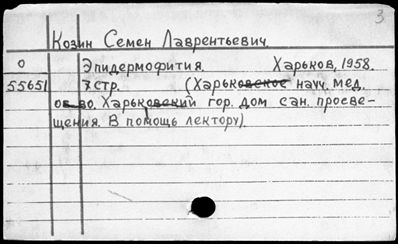 3
Козин Семен Лаврентьевич.
0 Эпидермофития. Харьков, 1958.
55651 7 стр. (Харьковское науч. мед.
об-во. Харьковский гор. дом сан. просве-
щения. В помощь лектору).